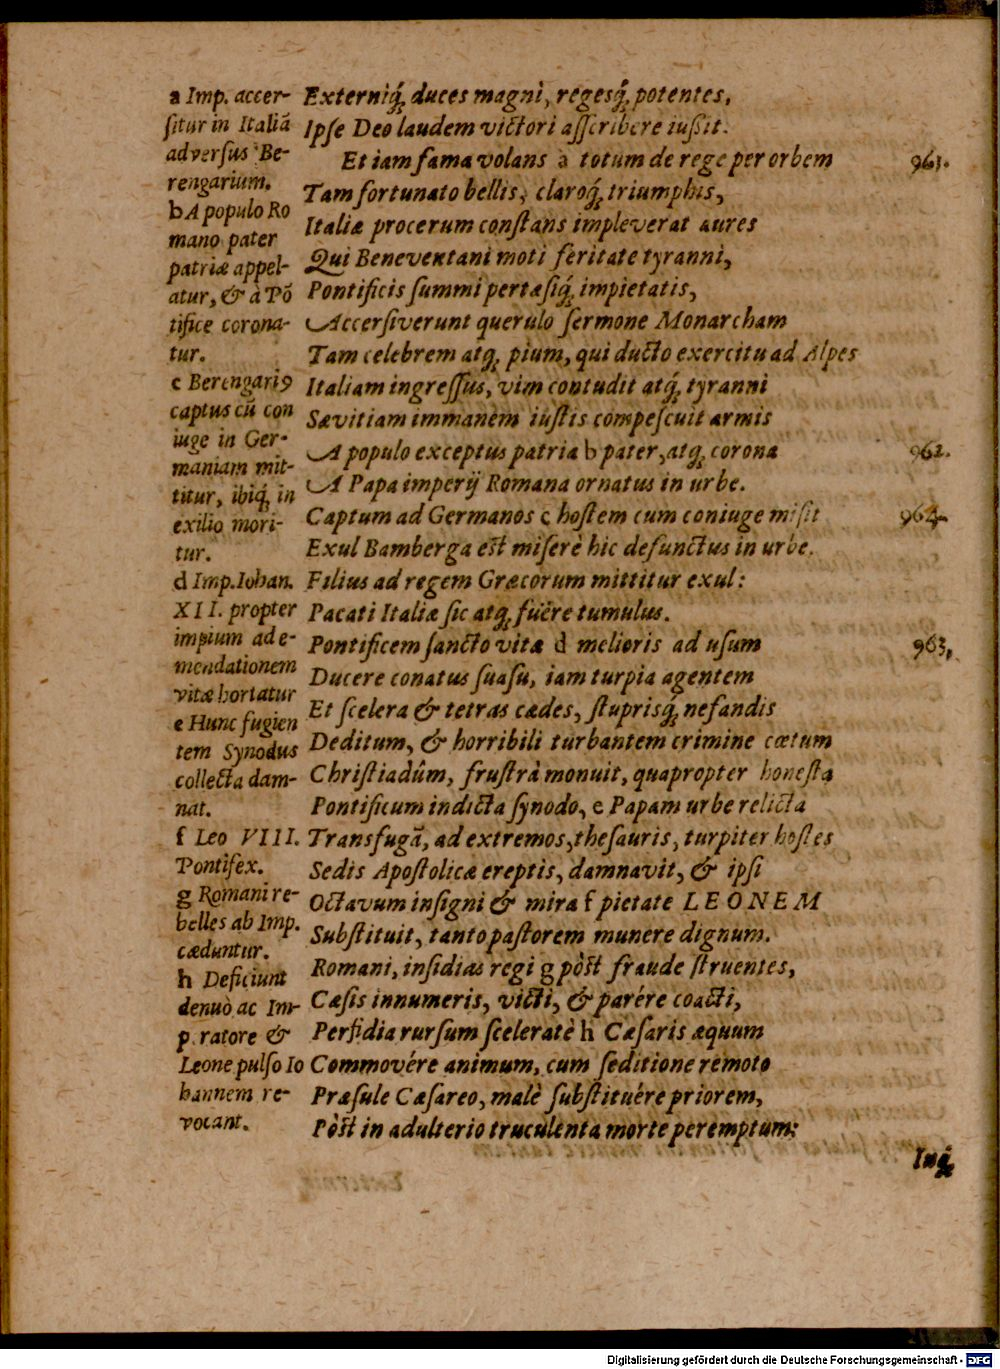 a Imp. accer-
ſitur in Italiã
adverſus Be-
rengarium.
b A populo Ro
mano pater
patriæ appel-
atur, & à Põ
tifice corona-
tur.
c Berengariꝰ
captus cũ con
iuge in Ger-
maniam mit-
titur, ibiq́; in
exilio mori-
tur.
d Imp. Iohan.
XII. propter
impium ad e-
mendationem
vitæ hortatur
e Hunc fugien
tem Synodus
collecta dam-
nat.
f Leo VIII.
Pontifex.
g Romani re-
belles ab Imp.
cæduntur.
h Deficiunt
denuò ac Im-
p.ratore &
Leone pulſo Io
hannem re-
vocant.
Externiq́; duces magni, regesq́; potentes,
Ipſe Deo laudem victori aſſcribere iußit.
Et iam fama volans a totum de rege per orbem
Tam fortunato bellis, claroq́; triumphis,
Italiæ procerum conſtans impleverat aures
Qui Beneventani moti feritate tyranni,
Pontificis ſummi pertæſiq́; impietatis,
Accerſiverunt querulo ſermone Monarcham
Tam celebrem atq; pium, qui ducto exercitu ad Alpes
Italiam ingreſſus, vim contudit atq́; tyranni
Sævitiam immanem iuſtis compeſcuit armis
A populo exceptus patria b pater, atq; corona
A Papa imperij Romana ornatus in urbe.
Captum ad Germanos c hoſtem cum coniuge miſit
Exul Bamberga eſt miſerè hic defunctus in urbe.
Filius ad regem Græcorum mittitur exul:
Pacati Italiæ ſic atq; fuêre tumulus.
Pontificem ſancto vitæ d melioris ad uſum
Ducere conatus ſuaſu, iam turpia agentem
Et ſcelera & tetras cædes, ſtuprisq́; nefandis
Deditum, & horribili turbantem crimine cœtum
Chriſtiadûm, fruſtrà monuit, quapropter honeſta
Pontificum indicta ſynodo, e Papam urbe relicta
Transfugã, ad extremos, theſauris, turpiter hoſtes
Sedis Apoſtolicæ ereptis, damnavit, & ipſi
Octavum inſigni & mira f pietate LEONEM
Subſtituit, tanto paſtorem munere dignum.
Romani, inſidias regi g pòſt fraude ſtruentes,
Cæſis innumeris, victi, & parére coacti,
Perfidia rurſum ſceleratè h Cæſaris æquum
Commovére animum, cum ſeditione remoto
Præſule Cæſareo, malè ſubſtituére priorem,
Pòſt in adulterio truculenta morte peremptum:
961.
962.
964.
963,
Inq́;
Digitalisierung gefördert durch die Deutsche Forschungsgemeinschaft - DFG